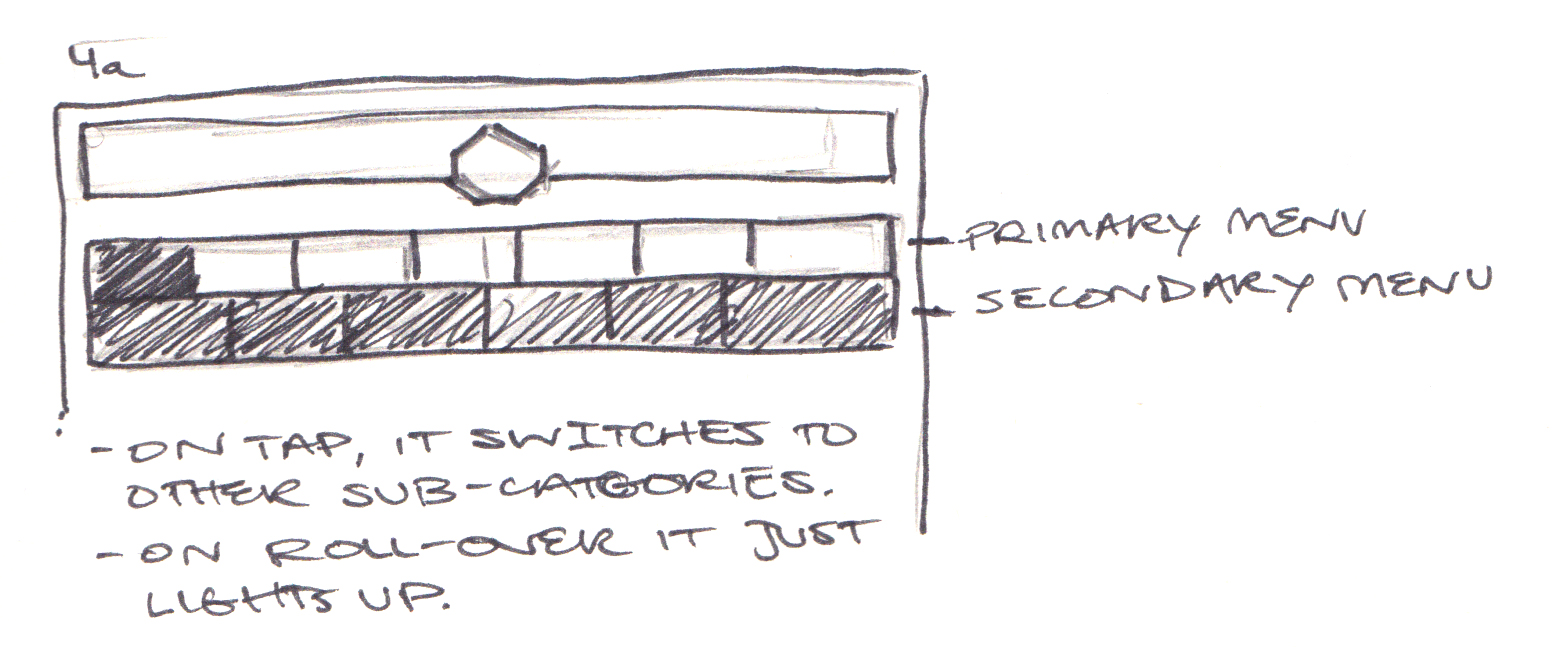 4a
PRIMARY MENU
SECONDARY MENU
- ON TAP, IT SWITCHES TO
OTHER SUB-CATEGORIES.
- ON ROLL-OVER IT JUST
LIGHTS UP.